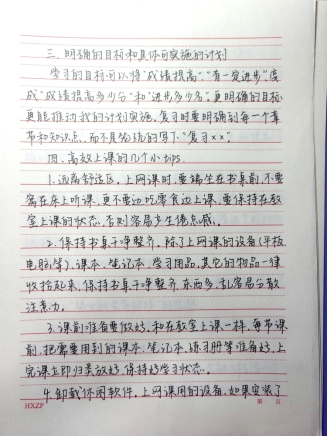 三、明确的目标和具体可实施的计划
学习的目标可以将"成绩提高"、"有一定进步"变
成"成绩提高多少分"和"进步多少名"。更明确的目标
更能推动我的计划实施。复习时要明确到每一个章
节和知识点,而不是笼统的写下"复习××"。
四、高效上课的几个小tips.
1.远离舒适区。上网课时,要端坐在书桌前,不要
窝在床上听课,更不要边吃零食边上课,要保持在教
室上课的状态,否则容易产生倦怠感。
2.保持书桌干净整齐。除了上网课的设备(平板、
电脑等)、课本、笔记本、学习用品,其它的物品一律
收拾起来,保持书桌干净整齐,东西多、乱容易分散
注意力。
3.课前准备要做好。和在教室上课一样,每节课
前,把需要用到的课本、笔记本、练习册等准备好,上
完课立即归类放好,保持好学习状态。
4.卸载休闲软件。上网课用的设备,如果安装了
HXZP
第 页